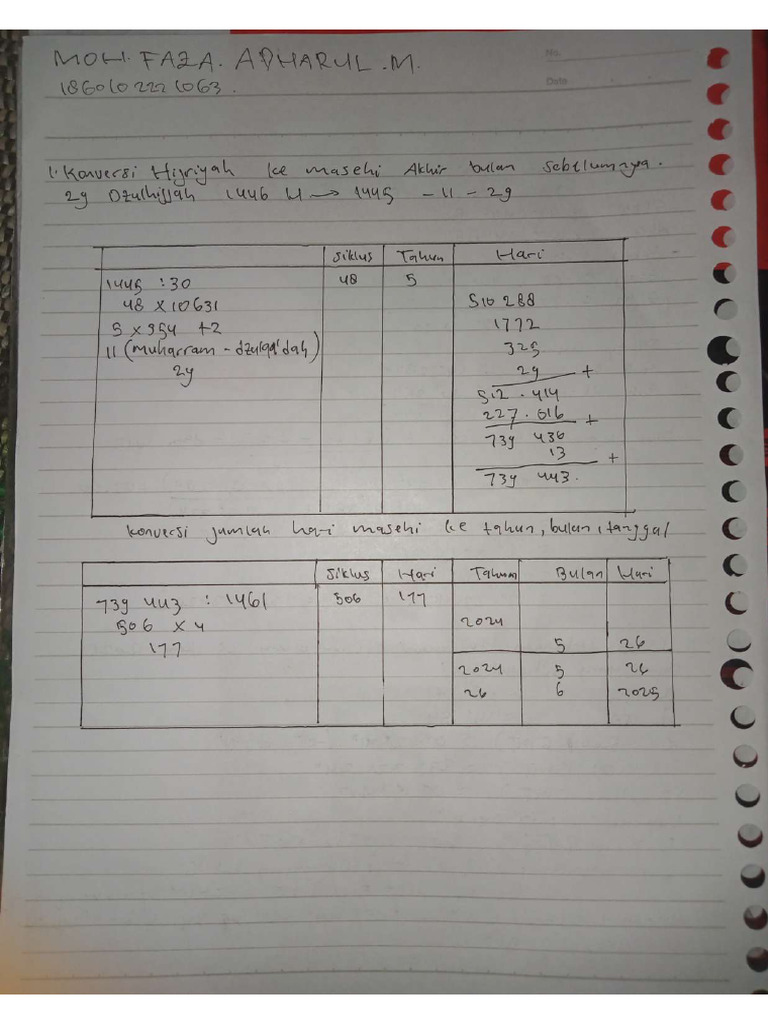 No.
Date
MOH. FAZA. ADHARUL .M.
1860102221063.
1. Konversi Hijriyah ke masehi Akhir bulan sebelumnya.
29 Dzulhijjah 1446 H → 1445 - 11 - 29
Siklus Tahun Hari
1445 : 30 48 5
48 x 10631 510 288
5 x 354 +2 1772
11 (Muharram - dzulqa'dah) 325
29 29 +
512.414
227.016 +
739 430
13 +
739 443.
Konversi jumlah hari masehi ke tahun, bulan, tanggal
Siklus Hari Tahun Bulan Hari
739 443 : 1461 506 177
506 x 4 2024
177 5 26
2024 5 26
26 6 2025